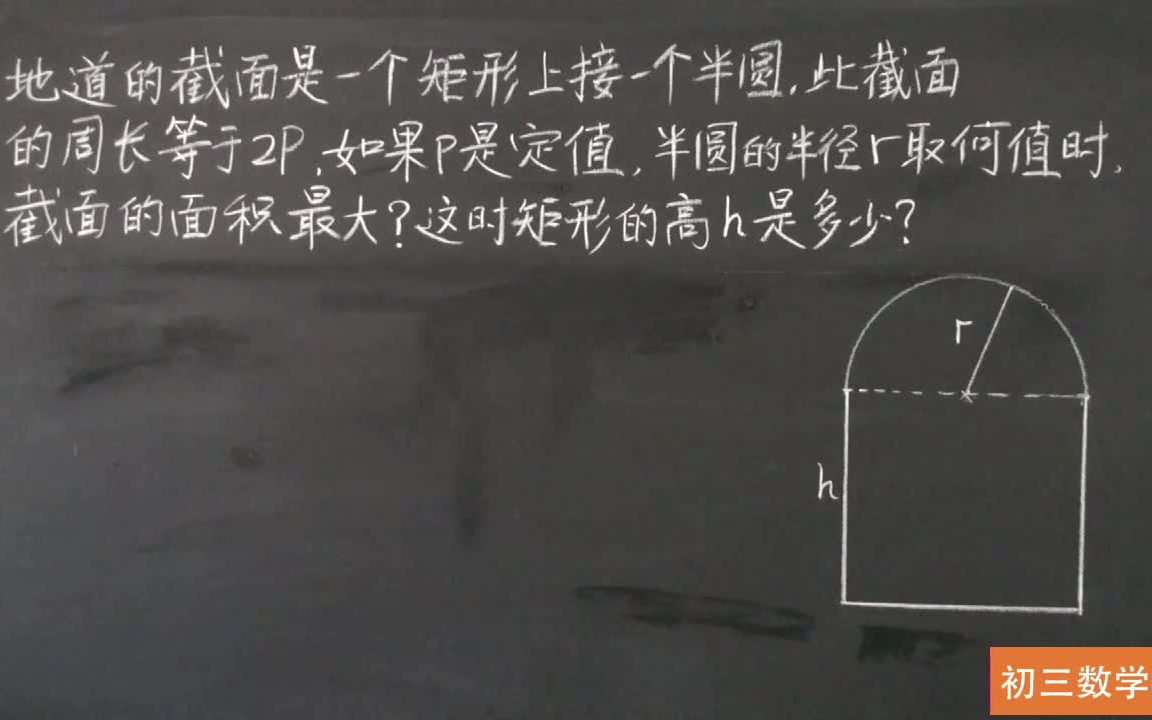 地道的截面是一个矩形上接一个半圆.此截面
的周长等于2P,如果P是定值,半圆的半径r取何值时,
截面的面积最大?这时矩形的高h是多少?
r
h
初三数学